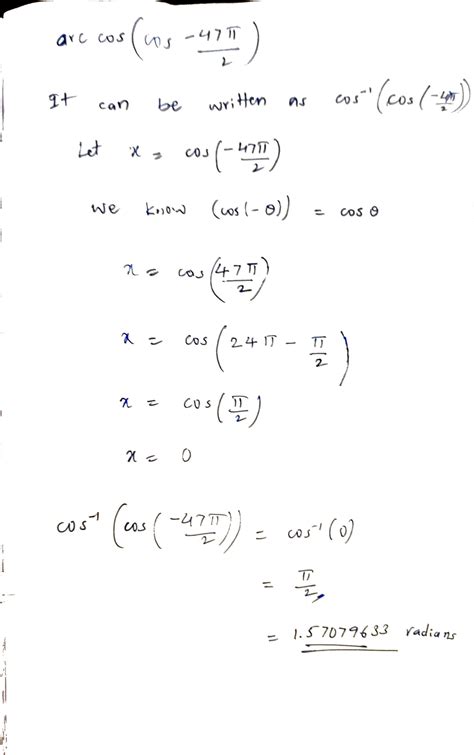 arc cos(cos -47π/2)
It can be written as cos⁻¹(cos(-47π/2))
Let x = cos(-47π/2)
we know (cos(-θ)) = cos θ
x = cos(47π/2)
x = cos(24π - π/2)
x = cos(π/2)
x = 0
cos⁻¹(cos(-47π/2)) = cos⁻¹(0)
= π/2,
= 1.57079633 radians